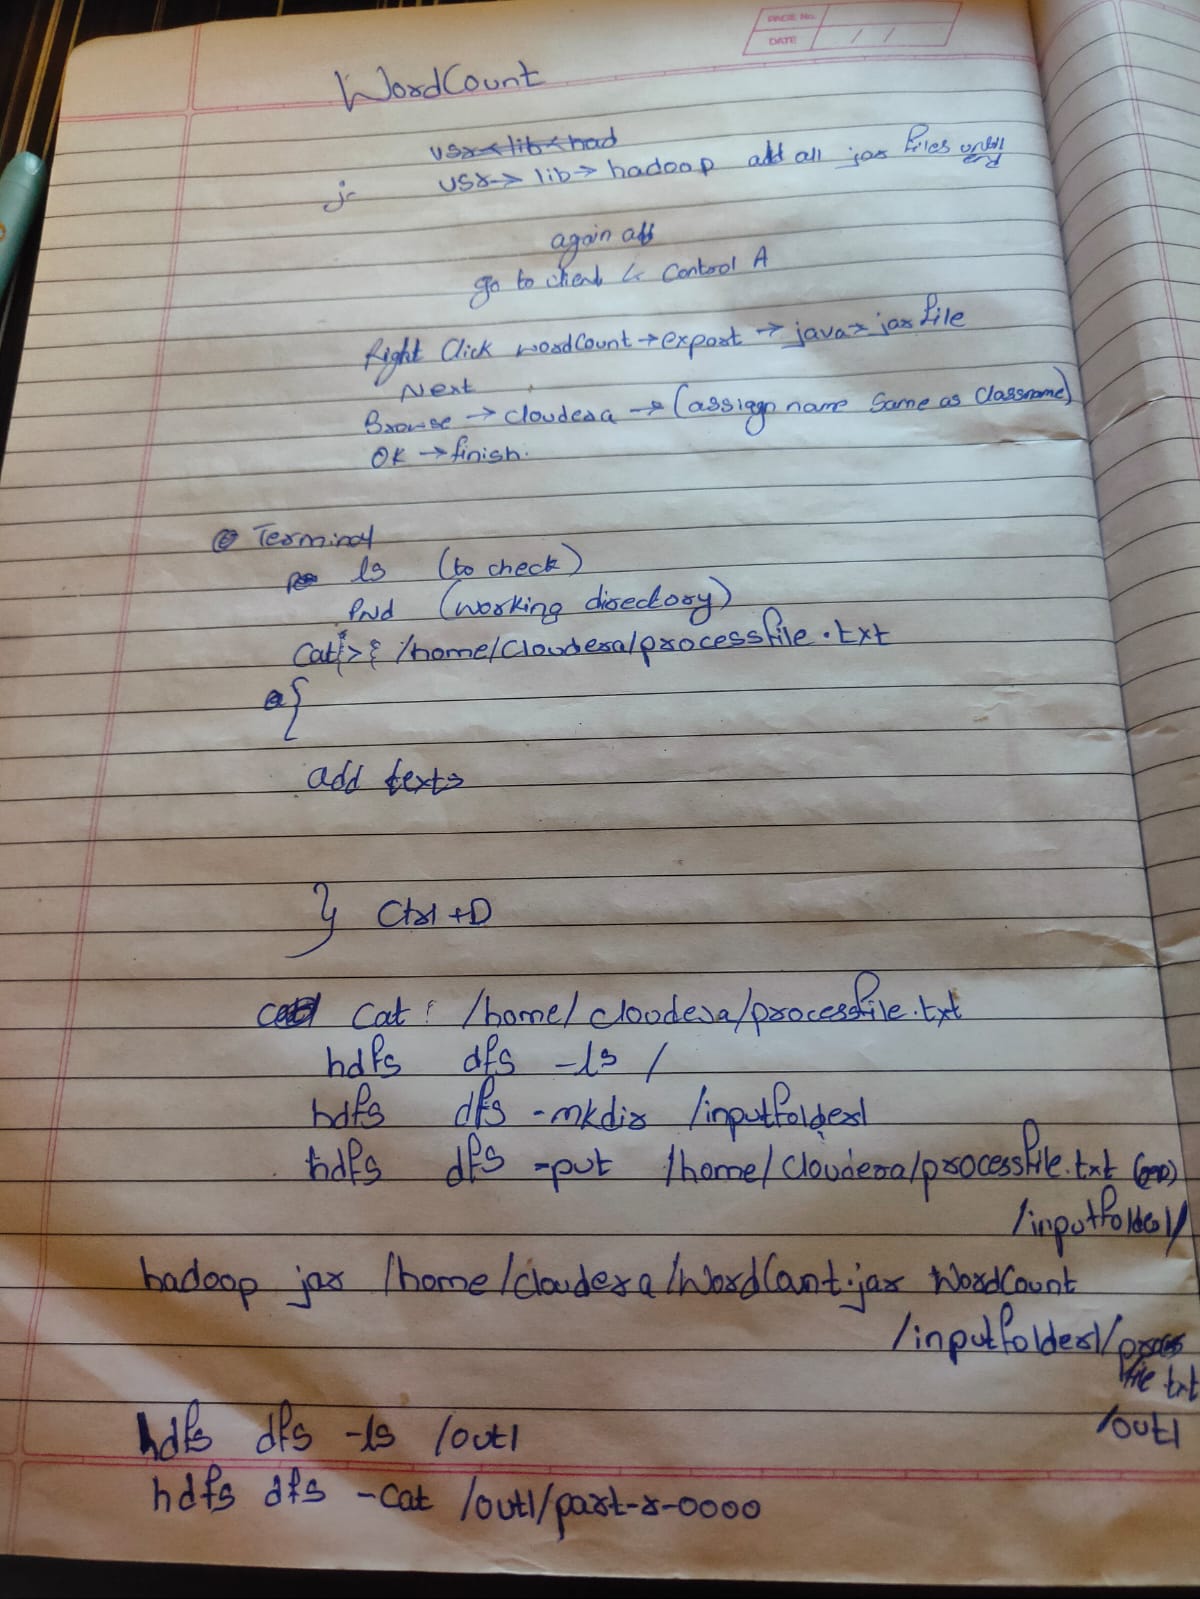 PAGE No.
DATE / /
WordCount
usr<lib<had
usr-> lib-> hadoop add all jar files until
j-
again all
go to client & Control A
Right Click wordCount->export -> java-> jar file
Next
Browse -> cloudera -> (assign name Same as Classname)
OK -> finish.
Terminal
ls (to check)
Pwd (working directory)
Cat > { /home/Cloudera/processfile.txt
{
add texts
} Ctrl +D
Cat /home/cloudera/processfile.txt
hdfs dfs -ls /
hdfs dfs -mkdir /inputfolder1
hdfs dfs -put /home/cloudera/processfile.txt
/inputfolder1/
hadoop jar /home/cloudera/WordCount.jar WordCount
/inputfolder1/process
file txt
/out1
hdfs dfs -ls /out1
hdfs dfs -cat /out1/part-r-0000